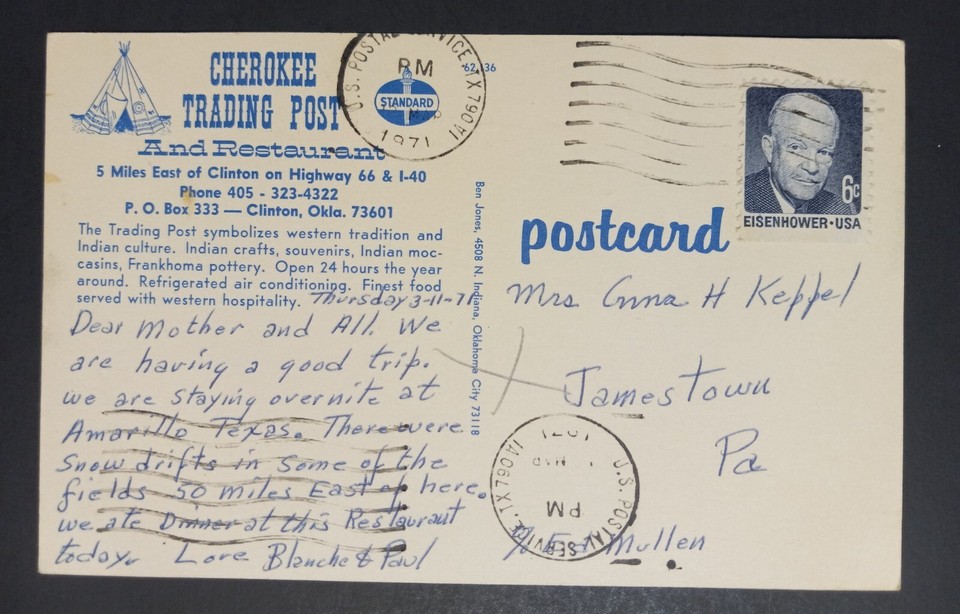 CHEROKEE
TRADING POST
And Restaurant
5 Miles East of Clinton on Highway 66 & I-40
Phone 405 - 323-4322
P. O. Box 333 — Clinton, Okla. 73601
The Trading Post symbolizes western tradition and
Indian culture. Indian crafts, souvenirs, Indian moc-
casins, Frankhoma pottery. Open 24 hours the year
around. Refrigerated air conditioning. Finest food
served with western hospitality.
Thursday 3-11-71
Dear Mother and All. We
are having a good trip.
we are staying overnite at
Amarillo Texas. There were
Snow drifts in some of the
fields 50 miles East of here.
we ate Dinner at this Restaurant
today. Love Blanche & Paul
STANDARD
U.S. POSTAL SERVICE, TX 790 1A
PM
1971
62,136
Ben Jones, 4508 N. Indiana, Oklahoma City 73118
6c
EISENHOWER·USA
postcard
Mrs Anna H Keppel
Jamestown
Pa
Mullen
U.S. POSTAL SERVICE, TX 790 1A
PM
MAR
1971